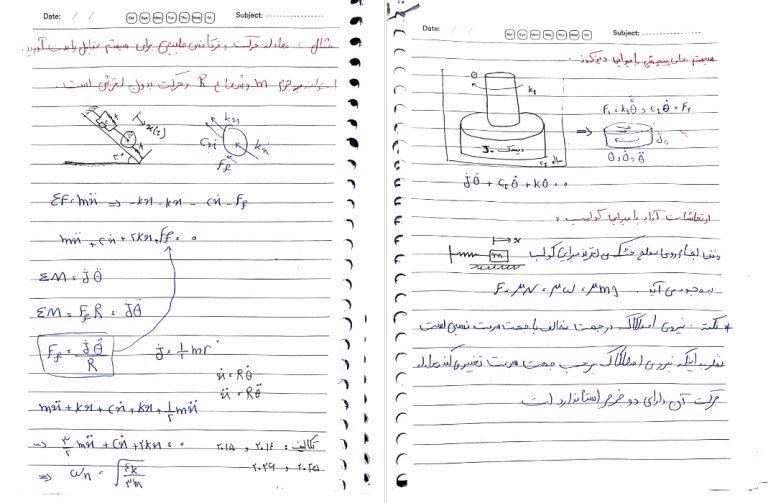 Date: / /
Sat Sun Mon Tue Thu Wed Fri
Subject:
مثال: معادله حرکت و فرکانس طبیعی برای سیستم مقابل را بدست آورید.
استوانه به جرم m و شعاع R و حرکت بدون لغزش است.
k
x(t)
kx
cẋ
kx
Ff
ΣF = mẍ ⇒ -kx - kx - cẋ - Ff
mẍ + cẋ + ۲kx + Ff = ۰
ΣM = Jθ̈
ΣM = Ff R = Jθ̈
Ff = Jθ̈ / R
J = ½ mr²
ẋ = Rθ̇
ẍ = Rθ̈
mẍ + kx + cẋ + kx + ½ mẍ
⇒ ۳/۲ mẍ + cẋ + ۲kx = ۰
تکالیف: ۲۰۱۴ و ۲۰۱۵
⇒ ωn = √(۴k/۳m)
Date:
Sat Sun Mon Tue Thu Wed Fri
Subject:
سیستم های پیچشی با میرایی ویسکوز:
θ
kt
دیسک J₀
ct
Jθ̈ + ctθ̇ + kθ = ۰
⇒
J₀
θ, θ̇, θ̈
ارتعاشات آزاد با میرایی کولمب:
x
m
وقتی اجسام روی سطح خشک می لغزند میرایی کولمب
بوجود می آید. F = μN = μω = μmg
* نکته: نیروی اصطکاک در جهت مخالف با جهت سرعت نسبی است
نظر به اینکه نیروی اصطکاک بر حسب جهت سرعت تغییر می کند معادله
حرکت آن دارای دو فرم استاندارد است